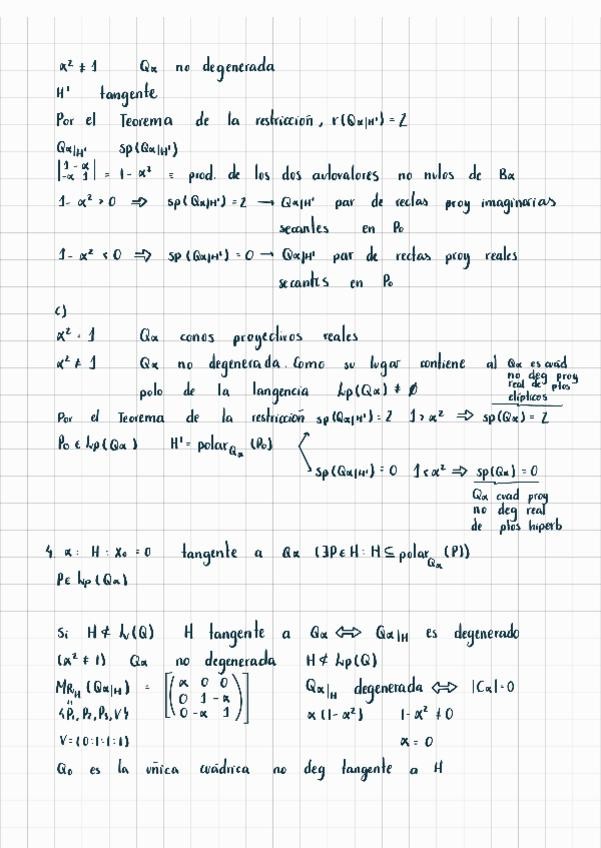 α² ≠ 1 Qα no degenerada
H' tangente
Por el Teorema de la restricción, r(Qα|H') = 2
Qα|H' sp(Qα|H')
|1 -α|
|-α 1| = 1 - α² = prod. de los dos autovalores no nulos de Bα
1 - α² > 0 ⇒ sp(Qα|H') = 2 → Qα|H' par de rectas proy imaginarias
secantes en P₀
1 - α² < 0 ⇒ sp(Qα|H') = 0 → Qα|H' par de rectas proy reales
secantes en P₀
c)
α² = 1 Qα conos proyectivos reales
α² ≠ 1 Qα no degenerada. Como su lugar contiene al
polo de la tangencia Lp(Qα) ≠ ∅
Qα es cuad
no deg proy
real de ptos
elípticos
Por el Teorema de la restricción sp(Qα|H') = 2 1 > α² ⇒ sp(Qα) = 2
P₀ ∈ Lp(Qα) H' = polar_Qα (P₀)
sp(Qα|H') = 0 1 < α² ⇒ sp(Qα) = 0
Qα cuad proy
no deg real
de ptos hiperb
4. α: H: X₀ = 0 tangente a Qα (∃P∈H: H ⊆ polar_Qα (P))
P ∈ Lp(Qα)
Si H ⊄ Lv(Q) H tangente a Qα ⇔ Qα|H es degenerado
(α² ≠ 1) Qα no degenerada H ⊄ Lp(Q)
M_RH (Qα|H) = [(α 0 0
0 1 -α
0 -α 1)] Qα|H degenerada ⇔ |Cα| = 0
{P₁, P₂, P₃, V} α(1 - α²) 1 - α² ≠ 0
V = (0:1:1:1) α = 0
Q₀ es la única cuádrica no deg tangente a H